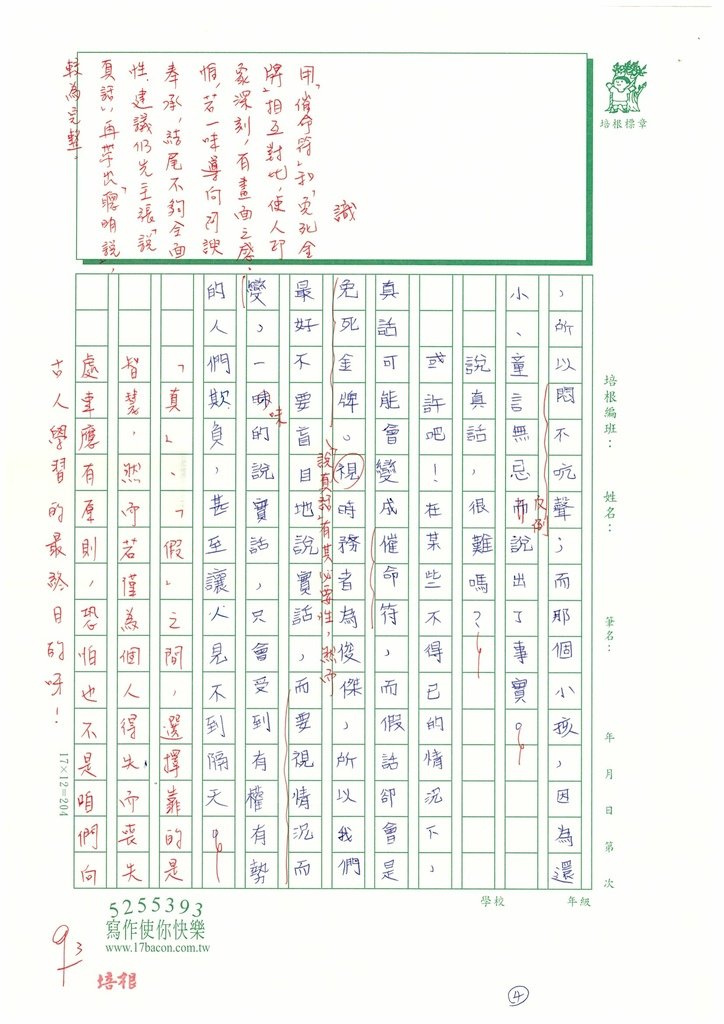 培根標章
用「催命符」和「免死金
牌」相互對比，使人印
象深刻，有畫面之感，
惟，若一味導向阿諛
奉承，結尾不夠全面
性，建議仍先主張「說
真話」，再舉出「聰明說」，
較為完整。
識
培根編班：
姓名：
筆名：
年 月 日 第 次
，所以悶不吭聲；而那個小孩，因為還
反倒
小、童言無忌而說出了事實。
說真話，很難嗎？
或許吧！在某些不得已的情況下，
真話可能會變成催命符，而假話卻會是
免死金牌。視時務者為俊傑，所以我們
說真話有其必要性，然而
最好不要盲目地說實話，而要視情況而
味
變，一昧的說實話，只會受到有權有勢
的人們欺負，甚至讓人見不到隔天。
「真」、「假」之間，選擇靠的是
智慧，然而若僅為個人得失而喪失
處事應有原則，恐怕也不是咱們向
古人學習的最終目的呀！
17×12=204
學校 年級
5255393
寫作使你快樂
www.17bacon.com.tw
93
培根
4